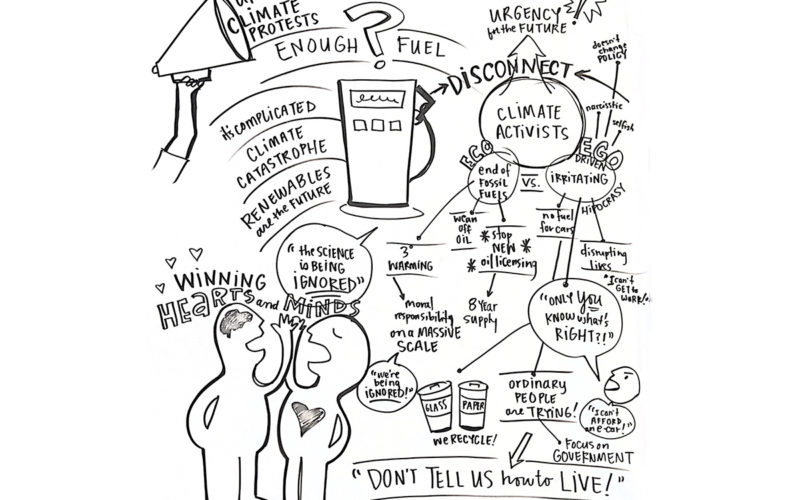 CLIMATE
PROTESTS
ENOUGH ? FUEL
it's COMPLICATED
CLIMATE
CATASTROPHE
RENEWABLES
are the FUTURE
URGENCY
for the FUTURE!
DISCONNECT
CLIMATE
ACTIVISTS
doesn't
change
POLICY
narcisstic
selfish
ECO
end of
FOSSIL
FUELS
VS.
EGO
DRIVEN
IRRITATING
HIPOCRASY
wean
OFF
OIL
* stop
NEW *
* oil licensing
8 Year
supply
3°
WARMING
moral
responsibility
on a MASSIVE
SCALE
no fuel
for cars
disrupting
lives
"I can't
GET to
WORK!"
"ONLY YOU
KNOW what's
RIGHT?!"
"I can't
AFFORD
an e-car!"
"the SCIENCE
is BEING
IGNORED"
WINNING
HEARTS and MINDS
"we're
being
IGNORED!"
GLASS
PAPER
we RECYCLE!
ORDINARY
PEOPLE
are TRYING!
FOCUS on
GOVERNMENT
"DON'T TELL US how to LIVE!"